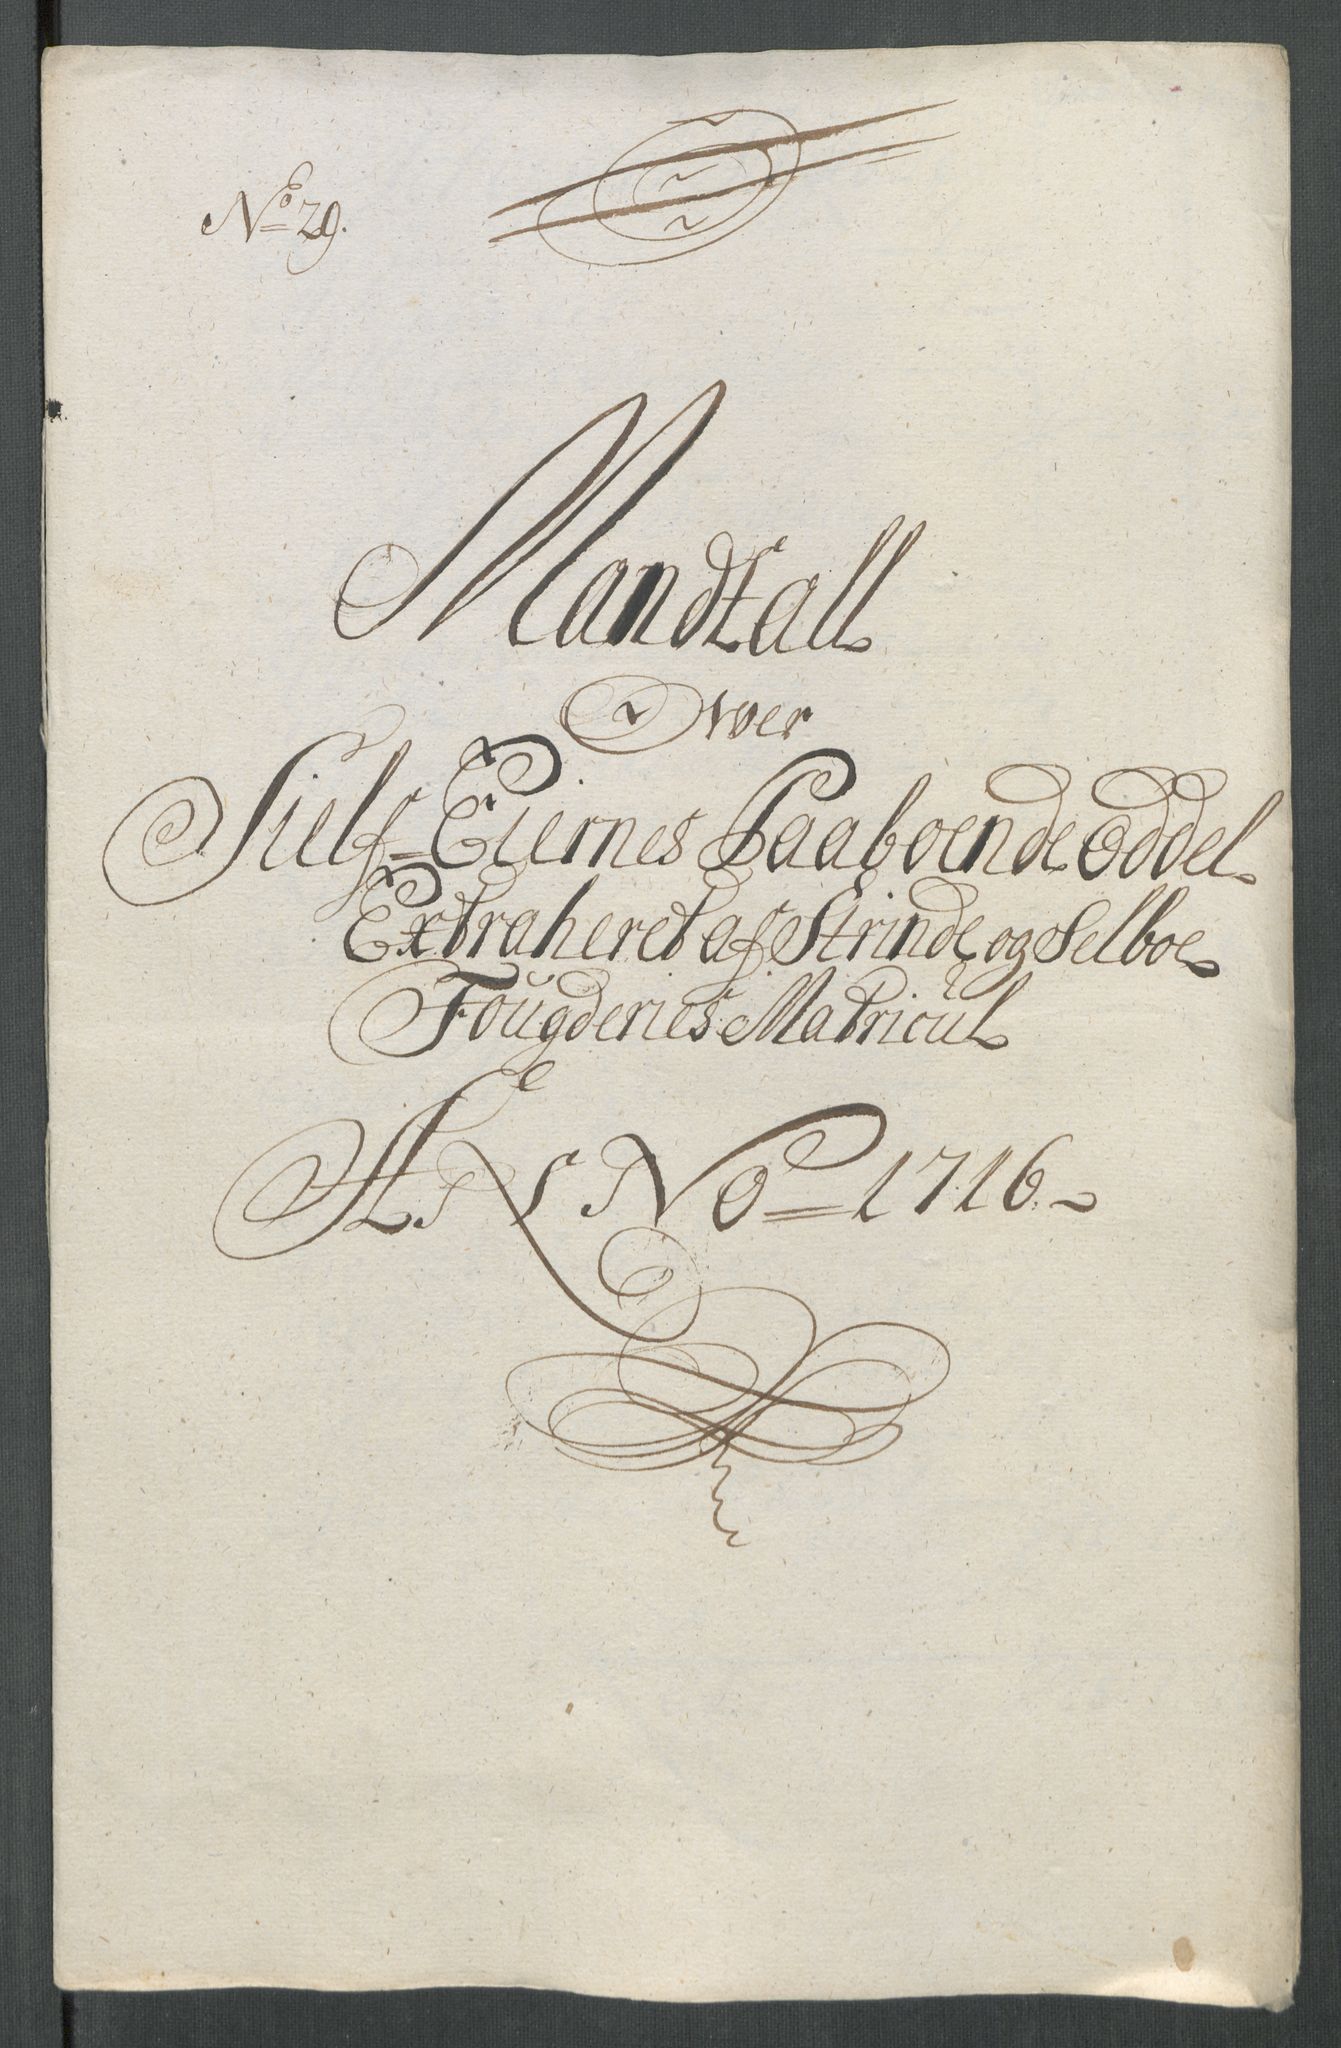 No 29.
Mandtall
Over
Sielf-Eiernes Paaboende Oddel
Extraheret af Strinde og Selboe
Fougderies Matricul
A N No 1716